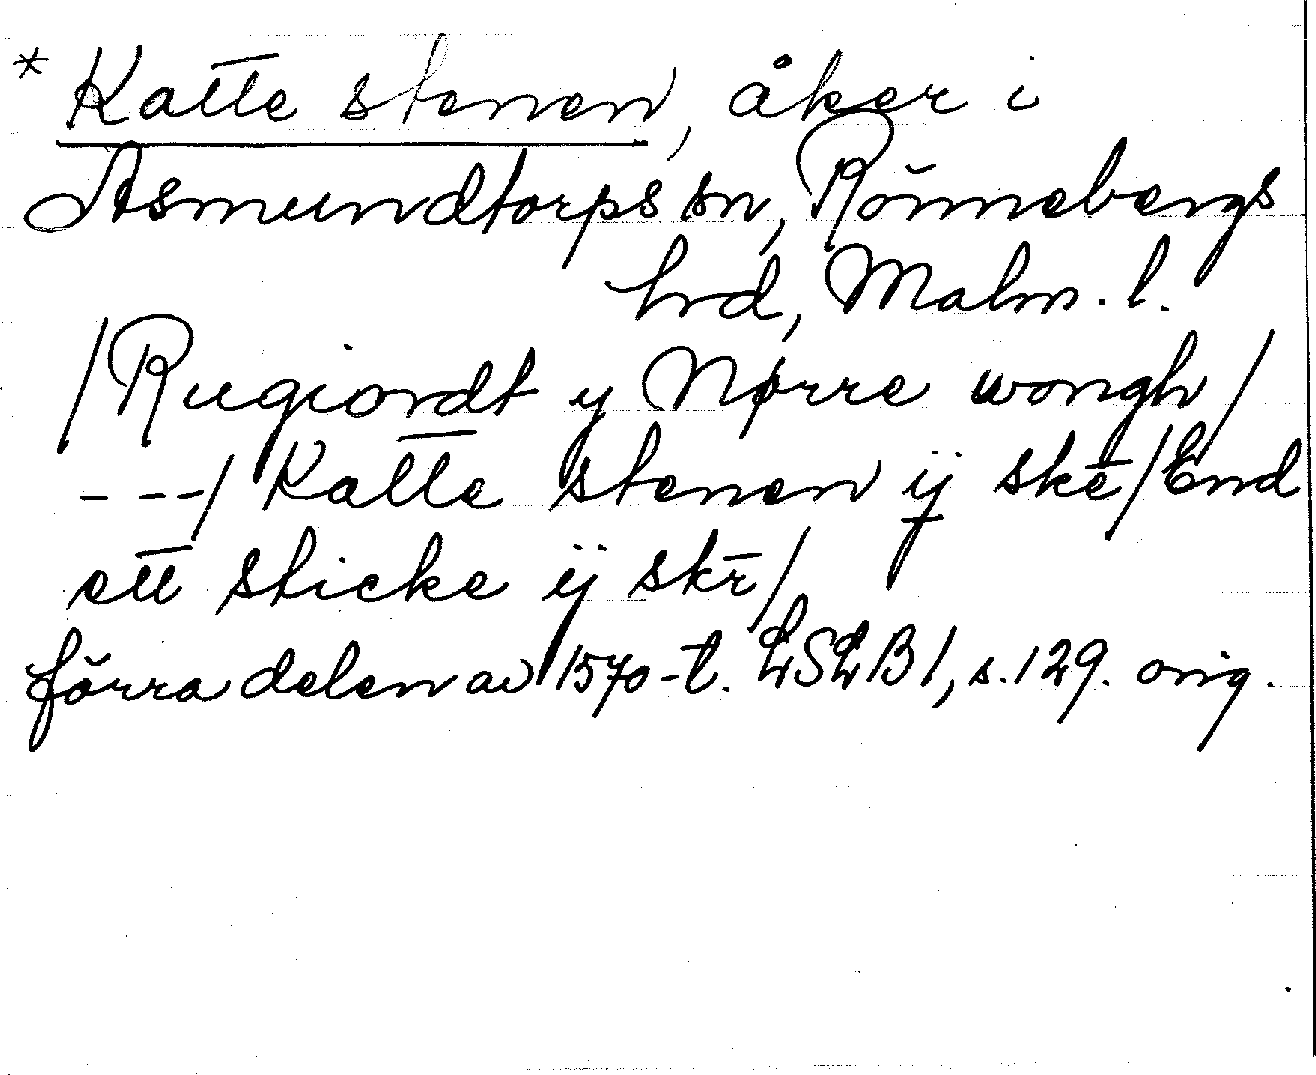 * Katte stenen, åker i
Asmundtorps sn, Rönnebergs
hrd, Malm. l.
/Rugiordt y Nørre wongh/
- - -/ Katte stenen ÿ skē/End
ett sticke ÿ skr̄/
förra delen av 1570-t. LSLB1, s.129. orig.